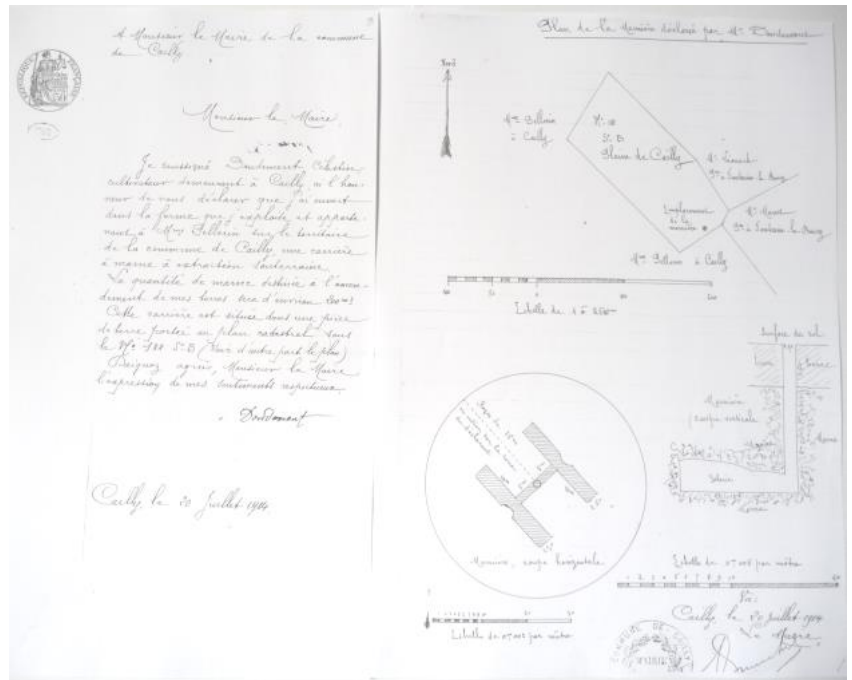 A Monsieur le Maire de la commune
de Cailly
Monsieur le Maire
Je soussigné Doudement
cultivateur demeurant à Cailly, ai l'hon-
neur de vous déclarer que j'ai ouvert
dans la ferme que j'exploite, et apparte-
nant à Mme Pellerin sur le territoire
de la commune de Cailly, une carrière
à marne à extraction souterraine.
La quantité de marne destinée à l'amen-
dement de mes terres sera d'environ
Cette carrière est située dans une pièce
de terre portée au plan cadastral sous
le (Voir d'autre part le plan)
Daignez agréer, Monsieur le Maire
l'expression de mes sentiments respectueux.
Doudement
Cailly, le 20 Juillet 1904
Plan de la Marnière déclarée par Mr. Doudement
Nord
Mme Pellerin
à Cailly
Son B
Plaine de Cailly
Mr
à Fontaine le Bourg
Emplacement
de la
marnière
Mr
à Fontaine le Bourg
Mme Pellerin à Cailly
Echelle de 1 à
Surface du sol
Terre
Marnière
coupe verticale
Marne
Marne
Rayon de
Marnière, coupe horizontale
Echelle de par mètre
1 2 3 4 5 6 7 8 9 10 20
Echelle de par mètre
Vu:
Cailly, le 20 Juillet 1904
Le Maire,
COMMUNE DE CAILLY
MAIRIE